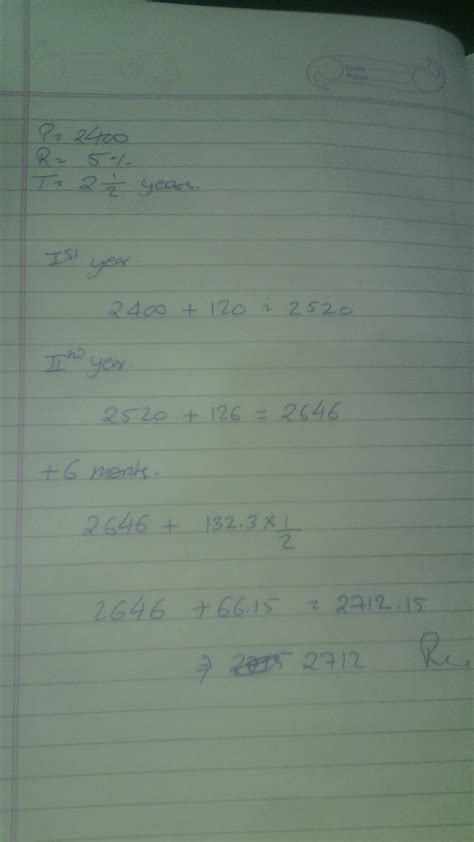 P = 2400
R = 5%
T = 2 1/2 years.
Ist year.
2400 + 120 = 2520
IInd year.
2520 + 126 = 2646
+6 monts.
2646 + 132.3 × 1/2
2646 + 66.15 = 2712.15
⇒ 2712